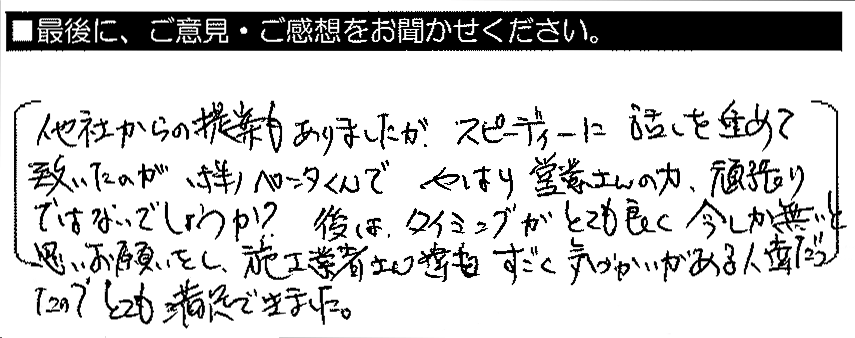 ■最後に、ご意見・ご感想をお聞かせください。
他社からの提案もありましたが、スピーディーに話しを進めて
致いたのが ペンタくんで やはり営業さんの力、頑張り
ではないでしょうか? 後は、タイミングがとても良く今しか無いと
思いお願いをし、施工業者さん達もすごく気づかいがある人達だっ
たのでとても満足できました。